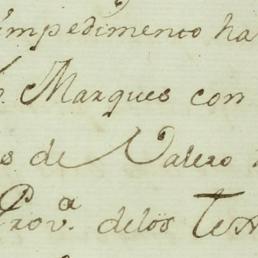 impedimento ha
Marques con
s de Valero
Prov.ª delos Tex